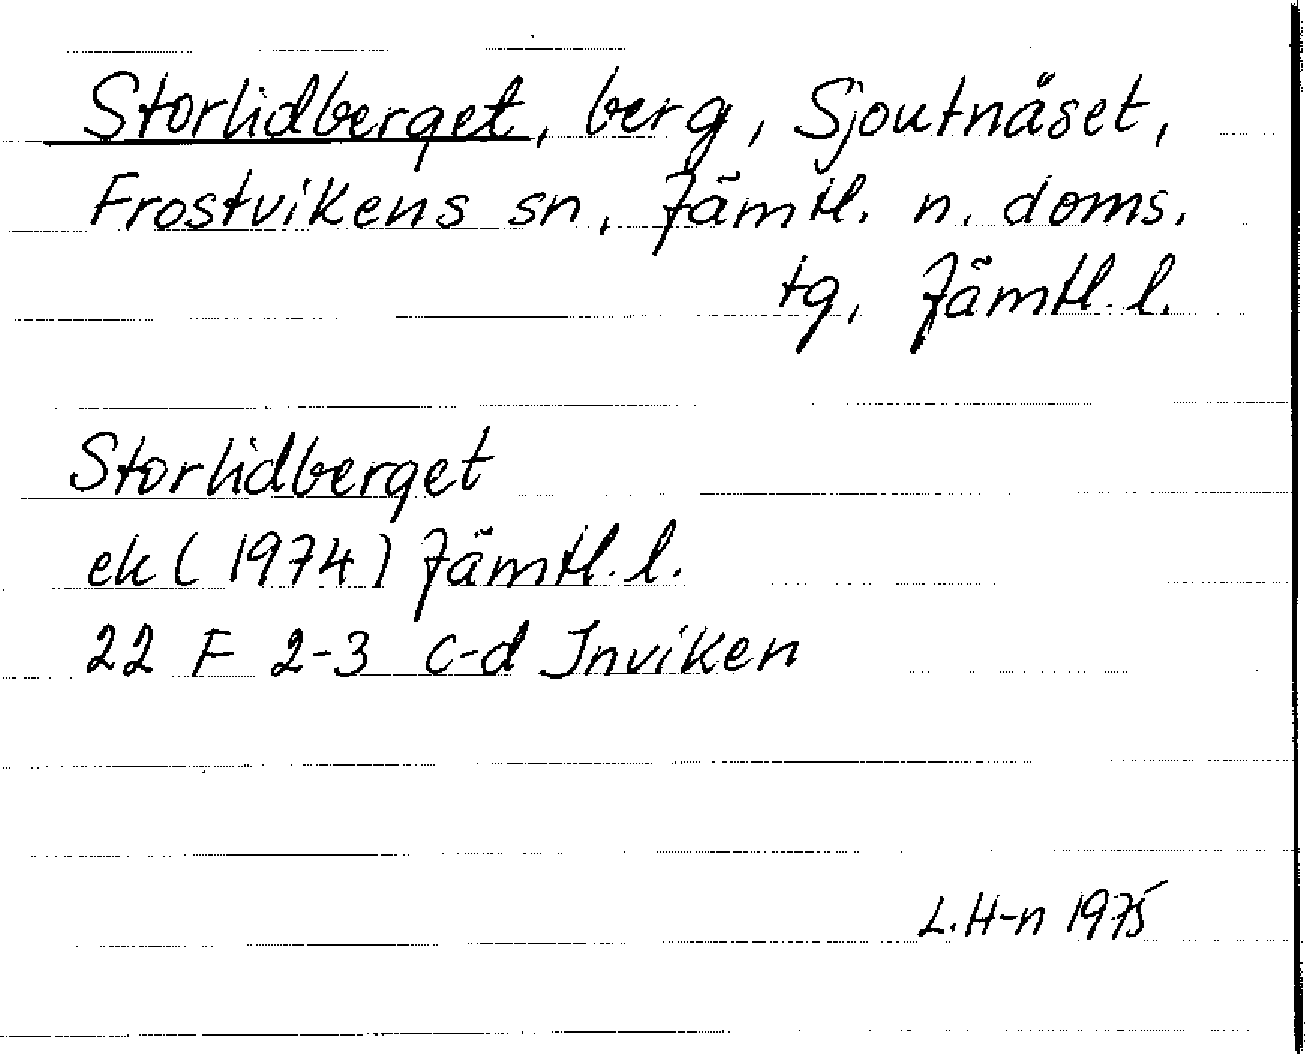 Storlidberget, berg, Sjoutnäset,
Frostvikens sn, Jämtl. n. doms.
tg, Jämtl. l.
Storlidberget
ek (1974) Jämtl. l.
22 F 2-3 c-d Inviken
L. H-n 1975